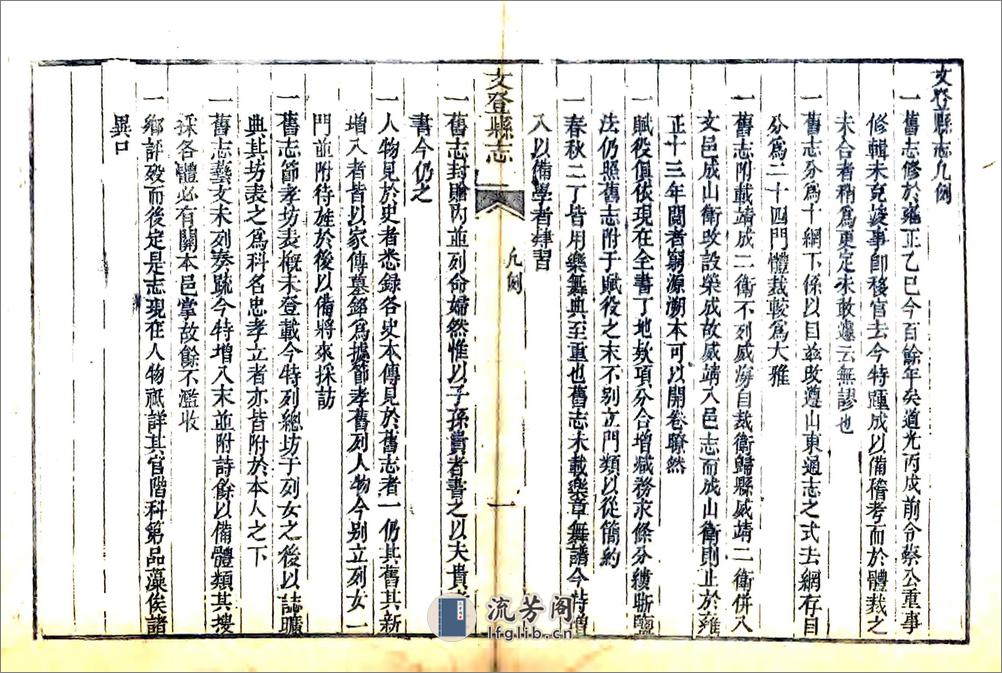 文登縣志凡例
一舊志修於雍正乙巳今百餘年矣道光丙戌前令蔡公重事
修輯未克竣事卽移官去今特踵成以備稽考而於體裁之
未合者稍爲更定未敢遽云無謬也
一舊志分爲十綱下係以目茲改遵山東通志之式去綱存目
分爲二十四門體裁較爲大雅
一舊志附載靖成二衛不列威海自裁衛歸縣威靖二衛併入
文邑成山衛改設榮成故威靖入邑志而成山衛則止於雍
正十三年閱者窮源溯本可以開卷瞭然
一賦役慎依現在全書丁地欵項分合增減務求條分縷晰鹽
法仍照舊志附于賦役之末不別立門類以從簡約
一春秋二丁皆用樂舞典至重也舊志未載樂章舞譜今特增
入以備學者肄習
文登縣志
凡例
一
一舊志封贈內並列命婦然惟以子孫貴者書之以夫貴
書今仍之
一人物見於史者悉録各史本傳見於舊志者一仍其舊其新
增入者皆以家傳墓銘爲據節孝舊列人物今別立列女一
門並附待旌於後以備將來採訪
一舊志節孝坊表概未登載今特列總坊于列女之後以誌曠
典其坊表之爲科名忠孝立者亦皆附於本人之下
一舊志藝文未列奏疏今特增入末並附詩餘以備體類其搜
採各體必有關本邑掌故餘不濫收
一鄉評歿而後定是志現在人物祇詳其官階科第品藻俟諸
異日
流芳阁
lfglib.cn